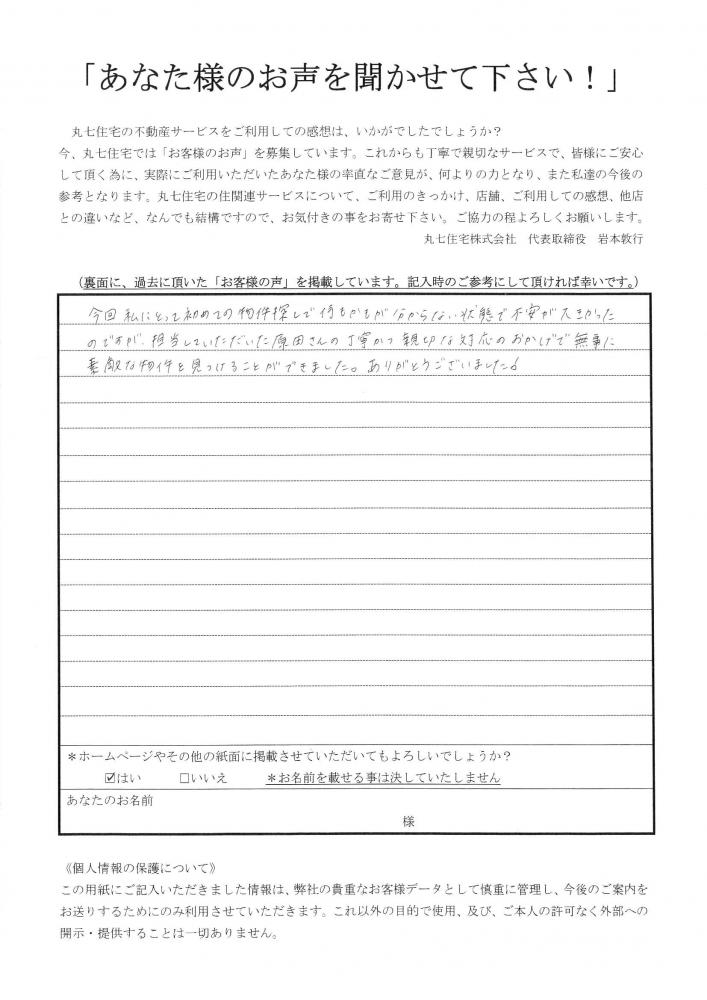 「あなた様のお声を聞かせて下さい！」
丸七住宅の不動産サービスをご利用しての感想は、いかがでしたでしょうか？
今、丸七住宅では「お客様のお声」を募集しています。これからも丁寧で親切なサービスで、皆様にご安心
して頂く為に、実際にご利用いただいたあなた様の率直なご意見が、何よりの力となり、また私達の今後の
参考となります。丸七住宅の住関連サービスについて、ご利用のきっかけ、店舗、ご利用しての感想、他店
との違いなど、なんでも結構ですので、お気付きの事をお寄せ下さい。ご協力の程よろしくお願いします。
丸七住宅株式会社　代表取締役　岩本敦行
（裏面に、過去に頂いた「お客様の声」を掲載しています。記入時のご参考にして頂ければ幸いです。）
今回私にとって初めての物件探しで何もかもが分からない状態で不安が大きかった
のですが、担当していただいた原田さんの丁寧かつ親切な対応のおかげで無事に
素敵な物件を見つけることができました。ありがとうございました！
＊ホームページやその他の紙面に掲載させていただいてもよろしいでしょうか？
☑はい　□いいえ　＊お名前を載せる事は決していたしません
あなたのお名前
様
《個人情報の保護について》
この用紙にご記入いただきました情報は、弊社の貴重なお客様データとして慎重に管理し、今後のご案内を
お送りするためにのみ利用させていただきます。これ以外の目的で使用、及び、ご本人の許可なく外部への
開示・提供することは一切ありません。